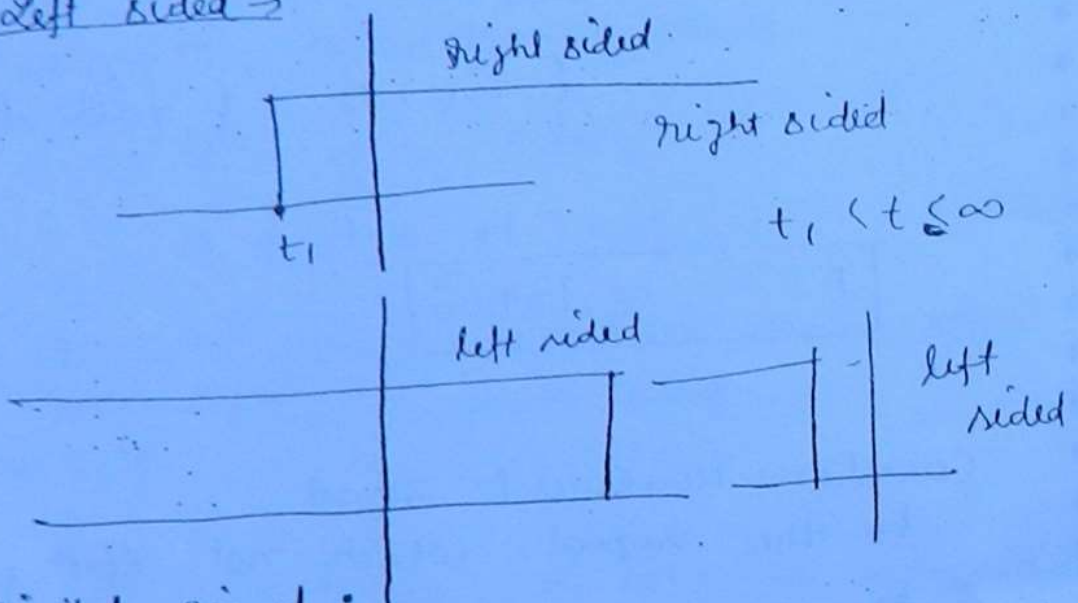 Left sided →
right sided.
right sided
t₁ < t ≤ ∞
t₁
left sided
left
sided